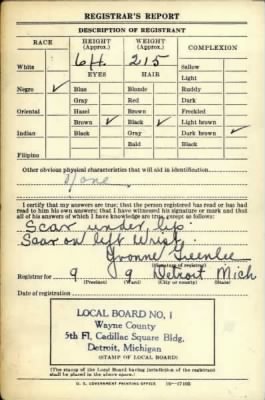 REGISTRAR'S REPORT
DESCRIPTION OF REGISTRANT
RACE HEIGHT (Approx.) WEIGHT (Approx.) COMPLEXION
White 6 ft. 215 Sallow
EYES HAIR Light
Negro ✓ Blue Blonde Ruddy
Gray Red Dark
Oriental Hazel Brown Freckled
Brown ✓ Black ✓ Light brown
Indian Black Gray Dark brown ✓
Bald Black
Filipino
Other obvious physical characteristics that will aid in identification
None
I certify that my answers are true; that the person registered has read or has had
read to him his own answers; that I have witnessed his signature or mark and that
all of his answers of which I have knowledge are true, except as follows:
Scar under lip.
Scar on left Wrist.
Yvonne Greenlee
(Signature of registrar)
Registrar for 9 9 Detroit Mich
(Precinct) (Ward) (City or county)
Date of registration
LOCAL BOARD NO. 1
Wayne County
5th Fl, Cadillac Square Bldg,
Detroit, Michigan
(STAMP OF LOCAL BOARD)
(The stamp of the Local Board having jurisdiction of the registrant
shall be placed in the above space.)
U. S. GOVERNMENT PRINTING OFFICE 16—17105